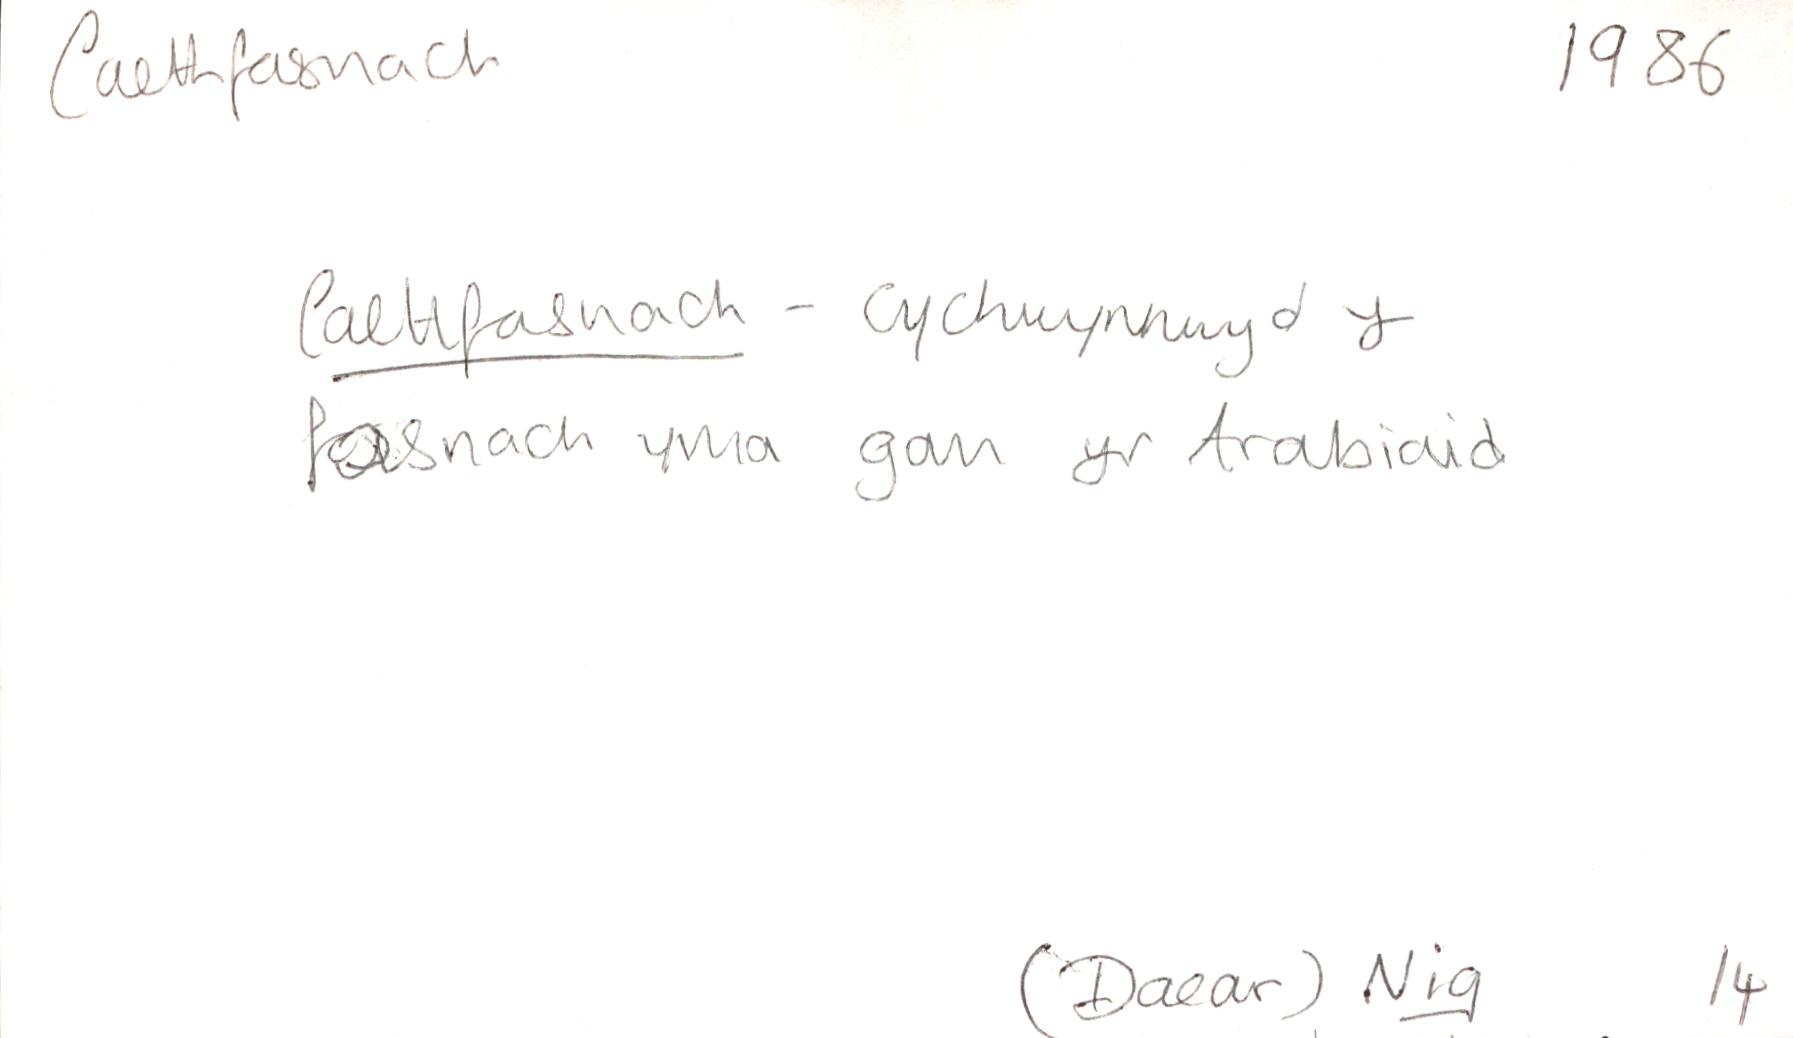 Caethfasnach 1986
Caethfasnach - Cychwynnwyd y
fasnach yma gan yr Arabiaid
(Daear) Nig 14